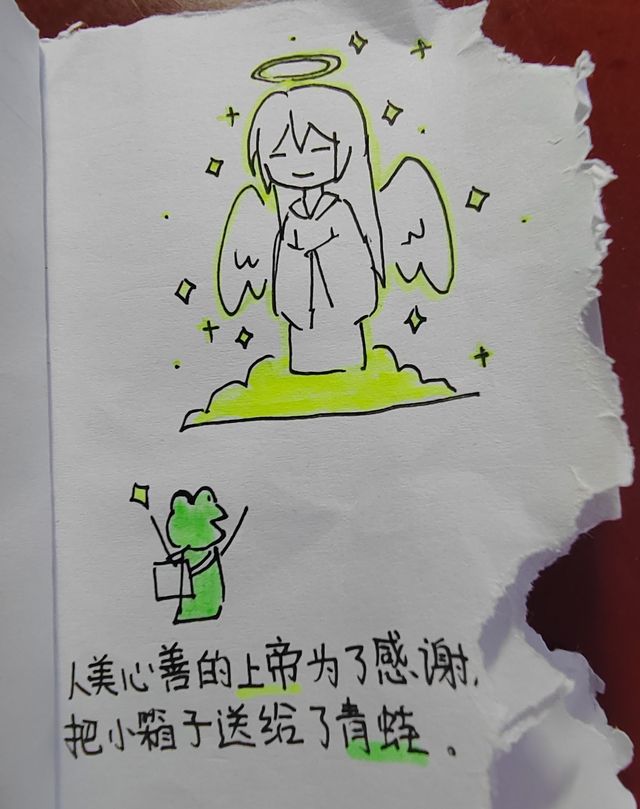 人美心善的上帝为了感谢,
把小箱子送给了青蛙。